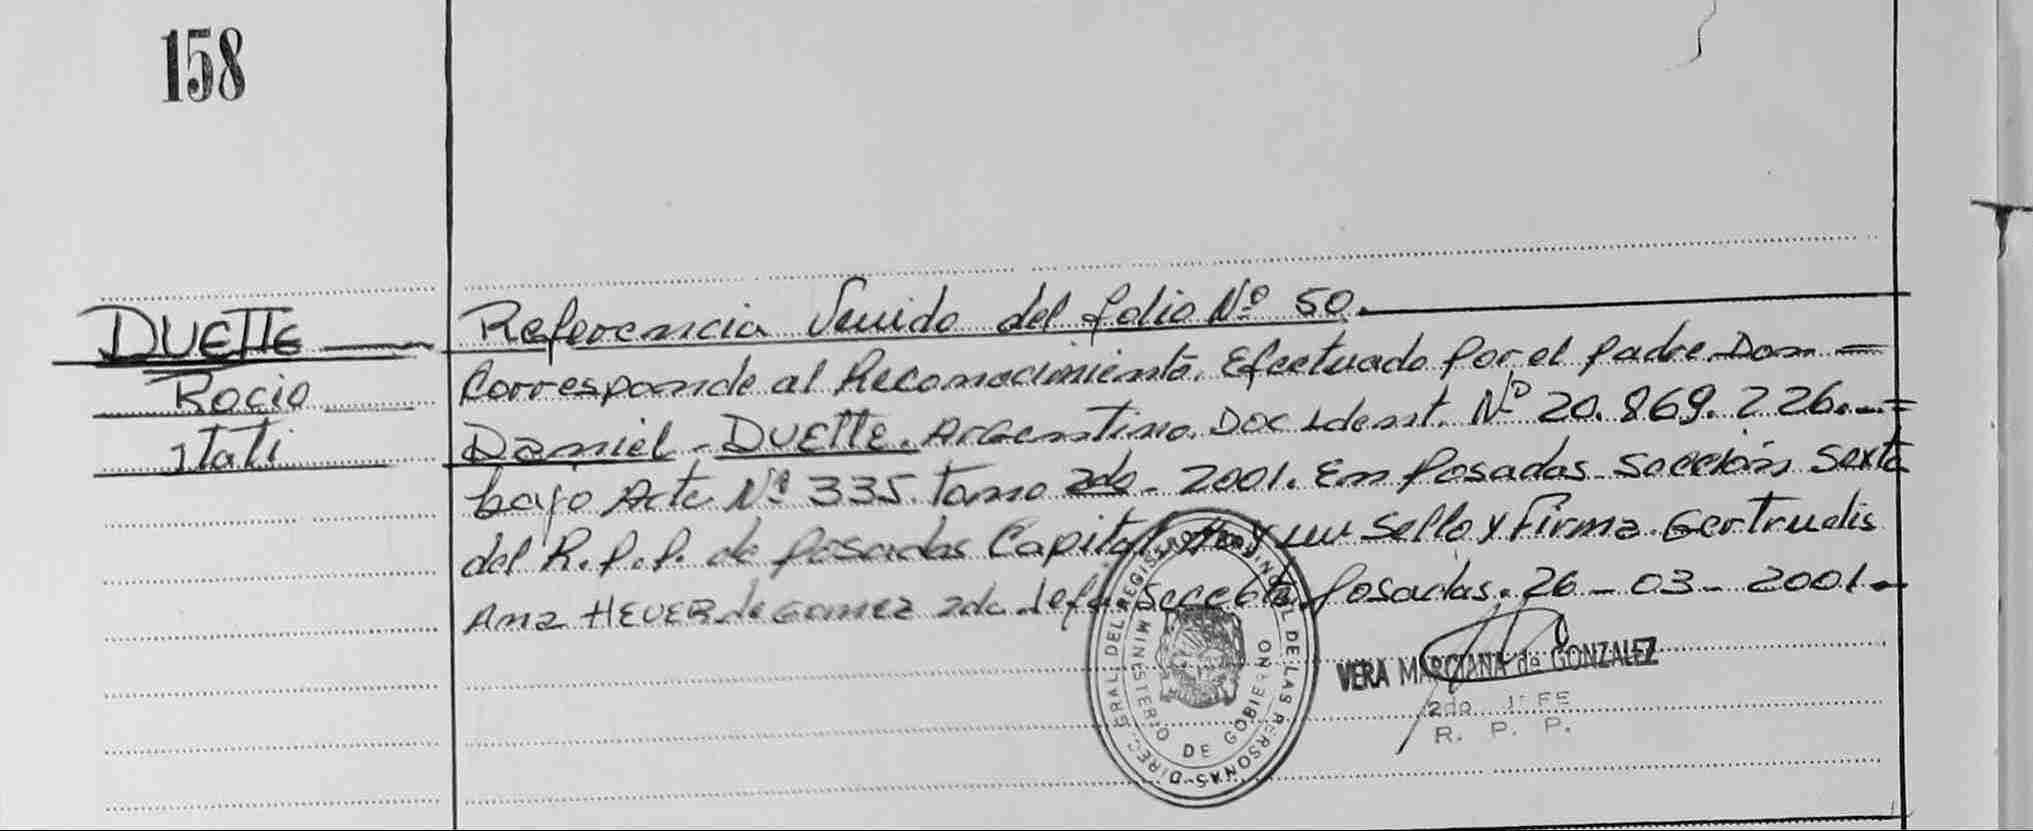 158
DUETTE
Rocio
Itati
Referencia Venido del folio Nº 50.
Corresponde al Reconocimiento. Efectuado por el padre Don =
Daniel - DUETTE. Argentino. Doc Ident. Nº 20.869.226.-=
bajo Acta Nº 335. tomo 2do - 2001. En Posadas Sección Sexta
del R.P.P. de Posadas Capital Hay un Sello y firma. Gertrudis
Ana HEUER de GOMEZ 2da. Jefa. Secc 6ta Posadas. 26-03-2001.-
DIREC. GRAL. DEL REGISTRO PROVINCIAL DE LAS PERSONAS
MINISTERIO DE GOBIERNO
VERA MARCIANA de GONZALEZ
2do JEFE
R. P. P.